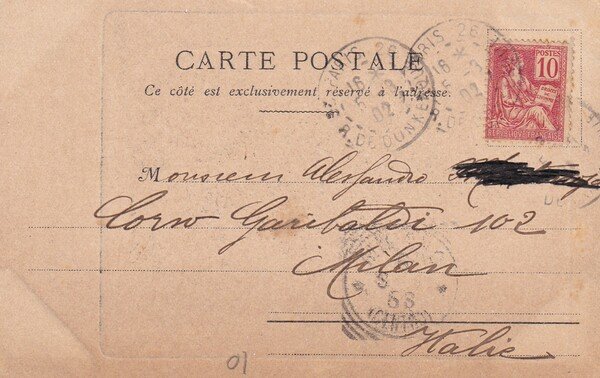 CARTE POSTALE
Ce côté est exclusivement réservé à l'adresse.
POSTES
10
RÉPUBLIQUE FRANÇAISE
PARIS 26
16
5
02
R. DE DUNKERQUE
PARIS 26
16
02
Monsieur Alessandro
Corso Garibaldi 102
Milan
Italie
01